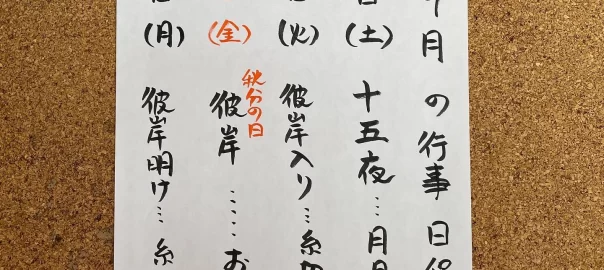 月の行事 日
(土) 十五夜…月
(火) 彼岸入り…糸
秋分の日
(金) 彼岸……お
(月) 彼岸明け…糸